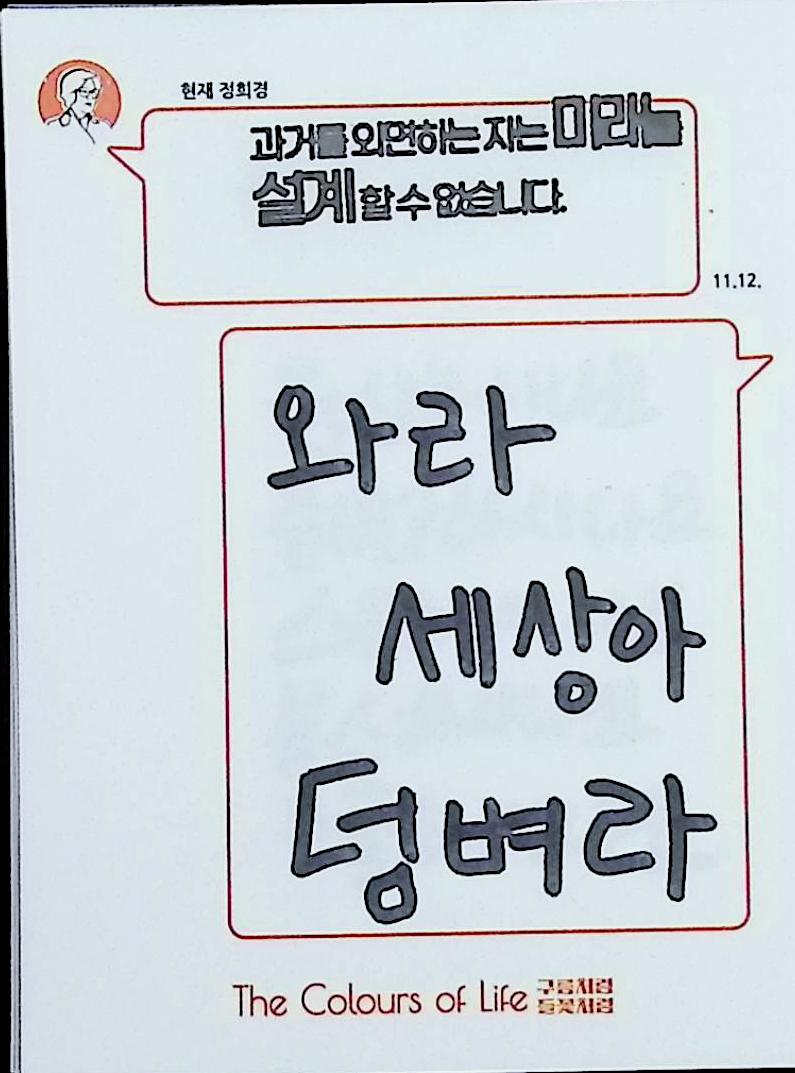 현재 정희경
과거를 외면하는 자는 미래를
설계할 수 없습니다.
11.12.
와라
세상아
덤벼라
The Colours of Life 구름처럼
들꽃처럼